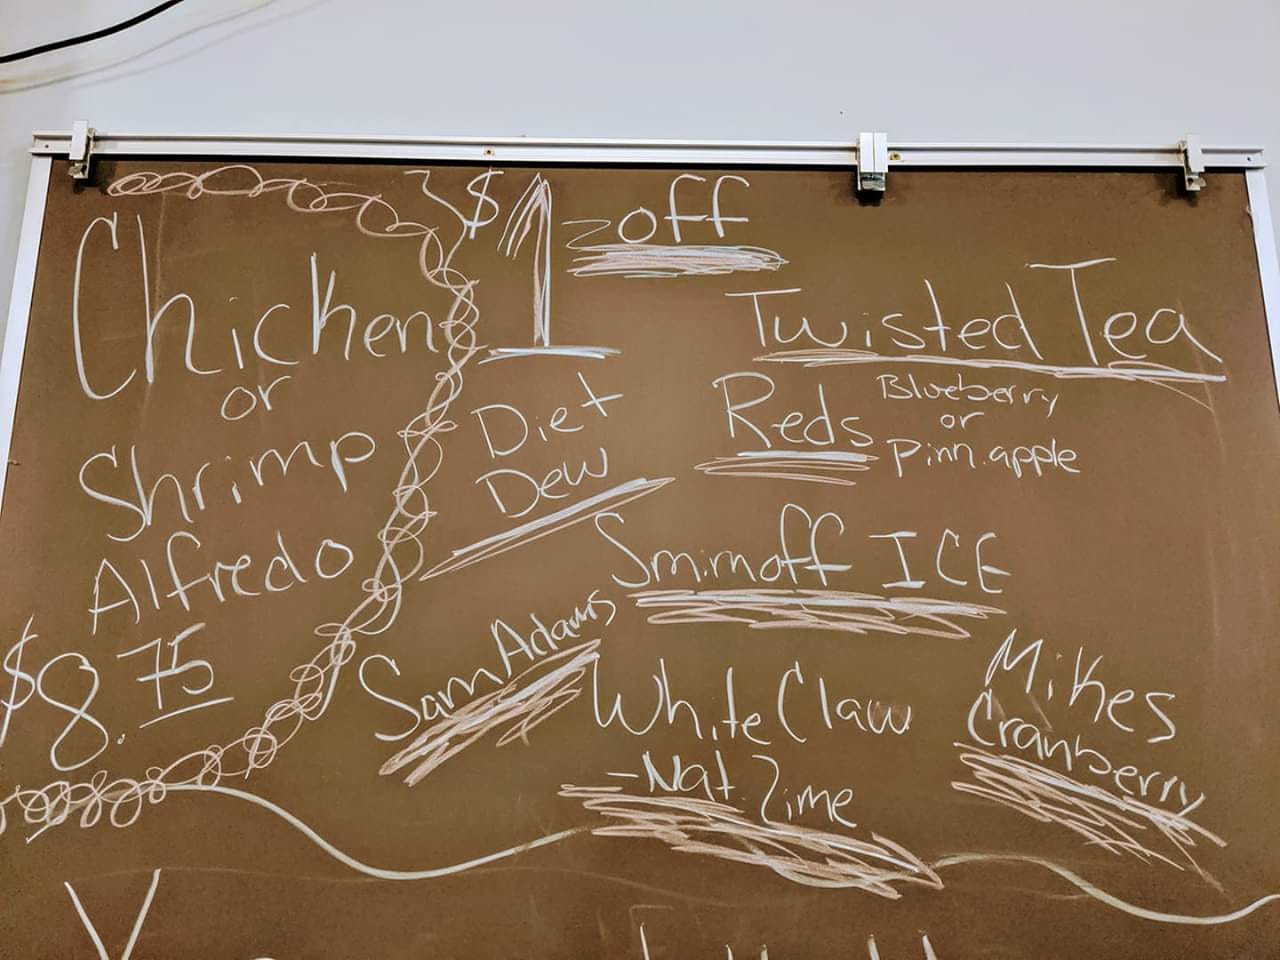 Chicken
or
Shrimp
Alfredo
$8.75
$1 off
Diet
Dew
Twisted Tea
Reds Blueberry
or
Pinn.apple
Smirnoff ICE
Sam Adams
White Claw
-Nat. Lime
Mikes
Cranberry